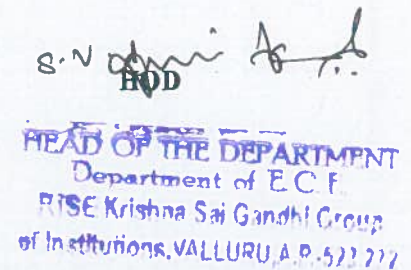 S.V
HOD
HEAD OF THE DEPARTMENT
Department of E C E
RISE Krishna Sai Gandhi Group
of Institutions, VALLURU, A.P.